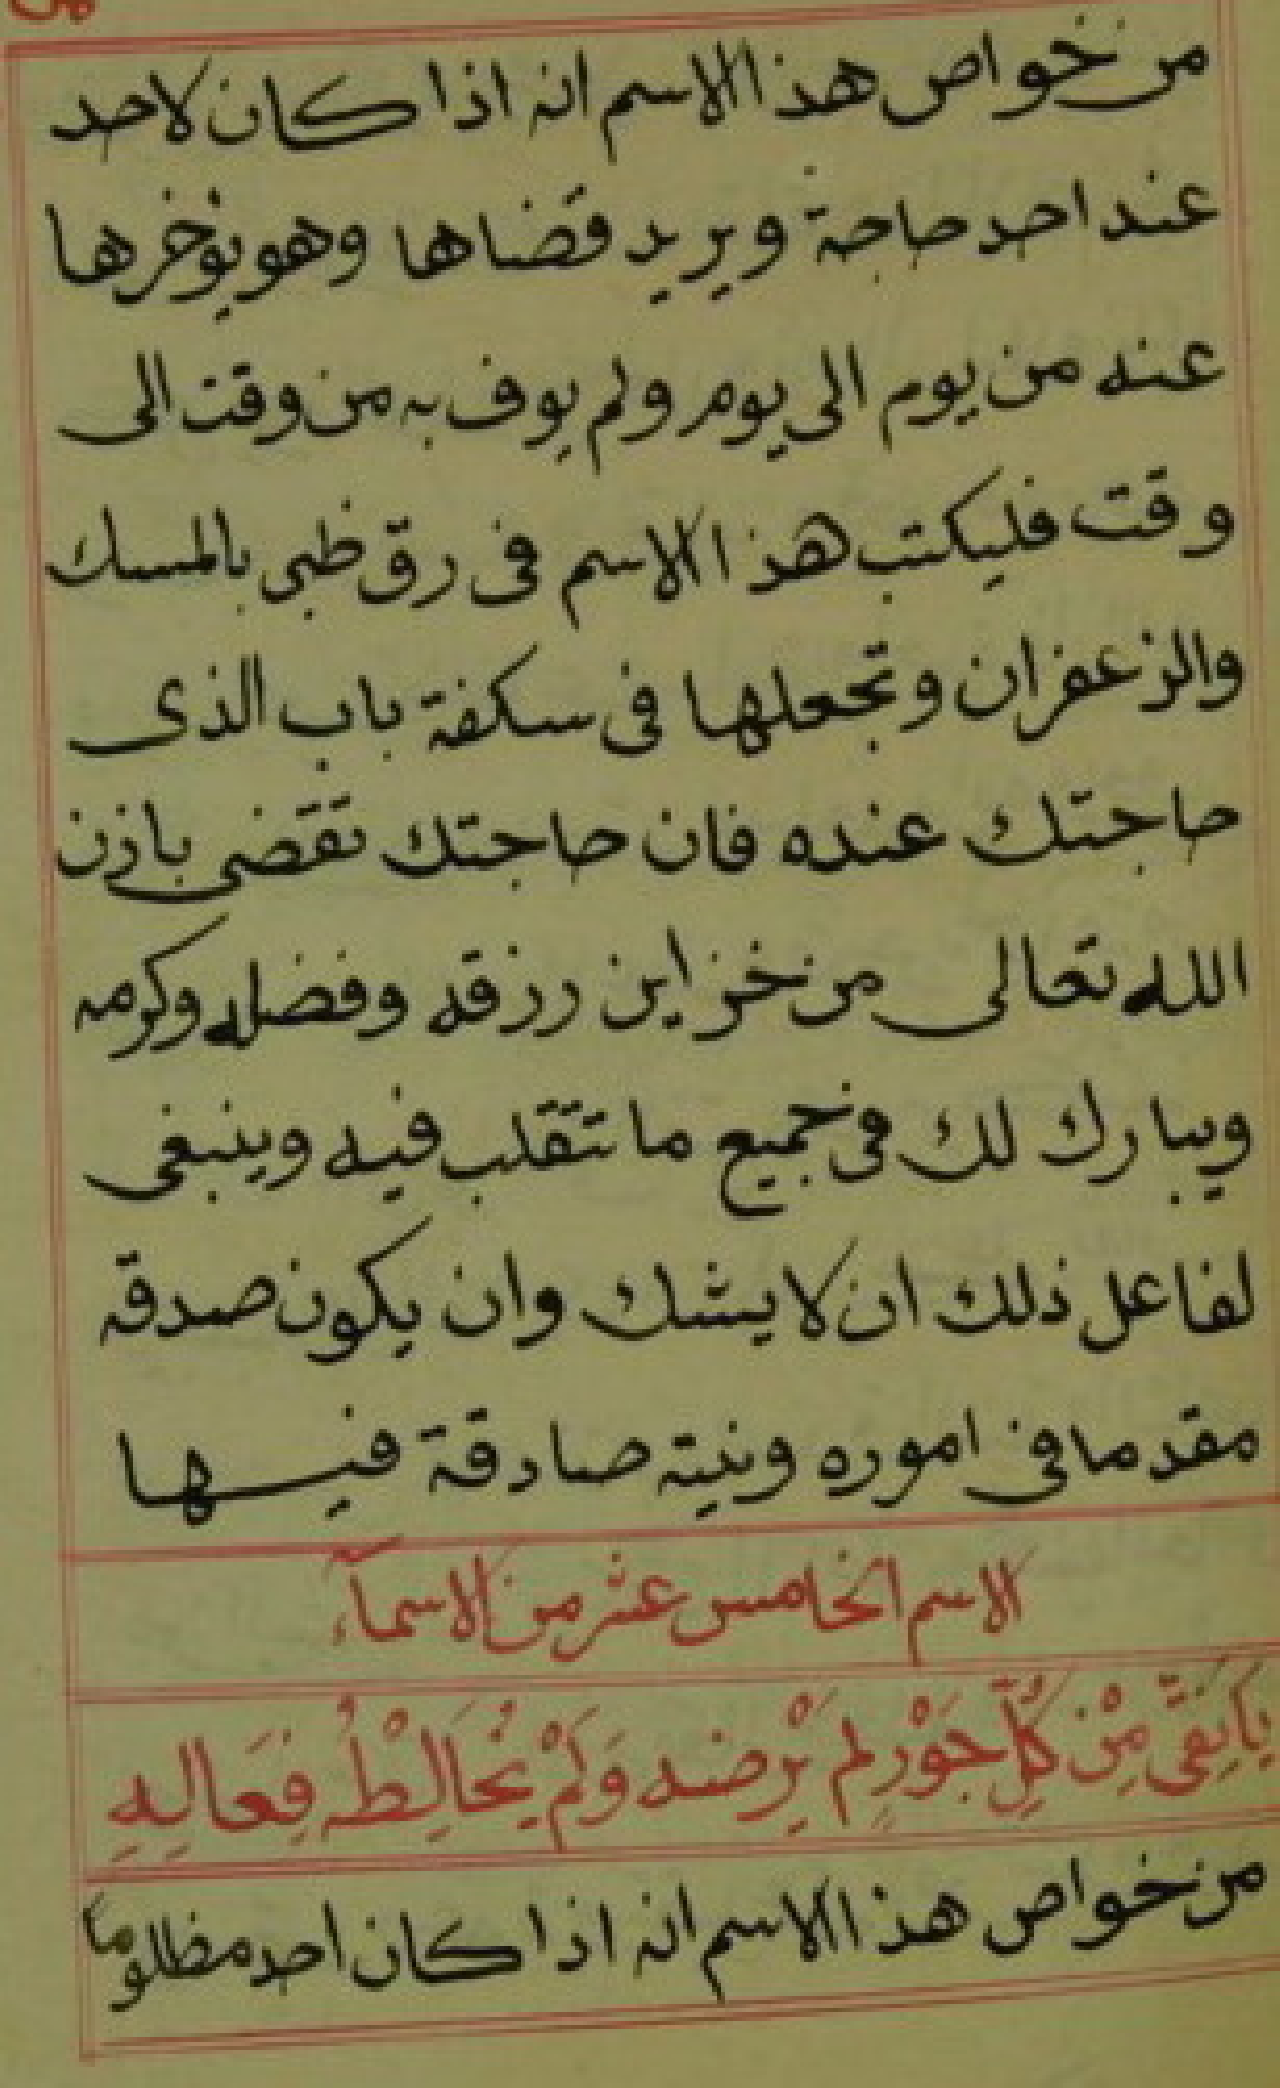 من خواص هذا الاسم انه اذا كان لاحد
عند احد حاجة ويريد قضاها وهو يؤخرها
عنه من يوم الى يوم ولم يوف به من وقت الى
وقت فليكتب هذا الاسم فى رق ظبى بالمسك
والزعفران وتجعلها فى سكفة باب الذى
حاجتك عنده فان حاجتك تقضى باذن
الله تعالى من خزاين رزقه وفضله وكرمه
ويبارك لك فى جميع ما تتقلب فيه وينبغى
لفاعل ذلك ان لا يشك وان يكون صدقه
مقدما فى اموره ونيته صادقة فيها
الاسم الخامس عشر من الاسمآء
يَا نَقِىُّ مِنْ كُلِّ جَوْرٍ لم يَرْضه وَلَمْ يُخَالِطْهُ فِعَالِهِ
من خواص هذا الاسم انه اذا كان احد مظلوماً